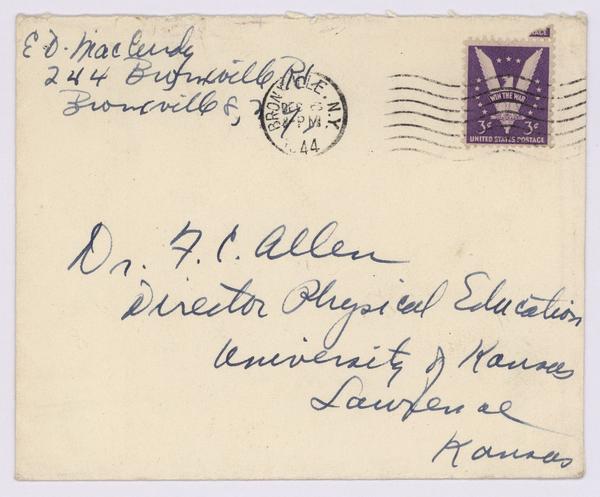 E. D. MacCurdy
244 Bronxville Rd
Bronxville 8,
BRONXVILLE N.Y.
DEC
PM
1944
WIN THE WAR
3¢ 3¢
UNITED STATES POSTAGE
Dr. F. C. Allen
Director Physical Education
University of Kansas
Lawrence
Kansas